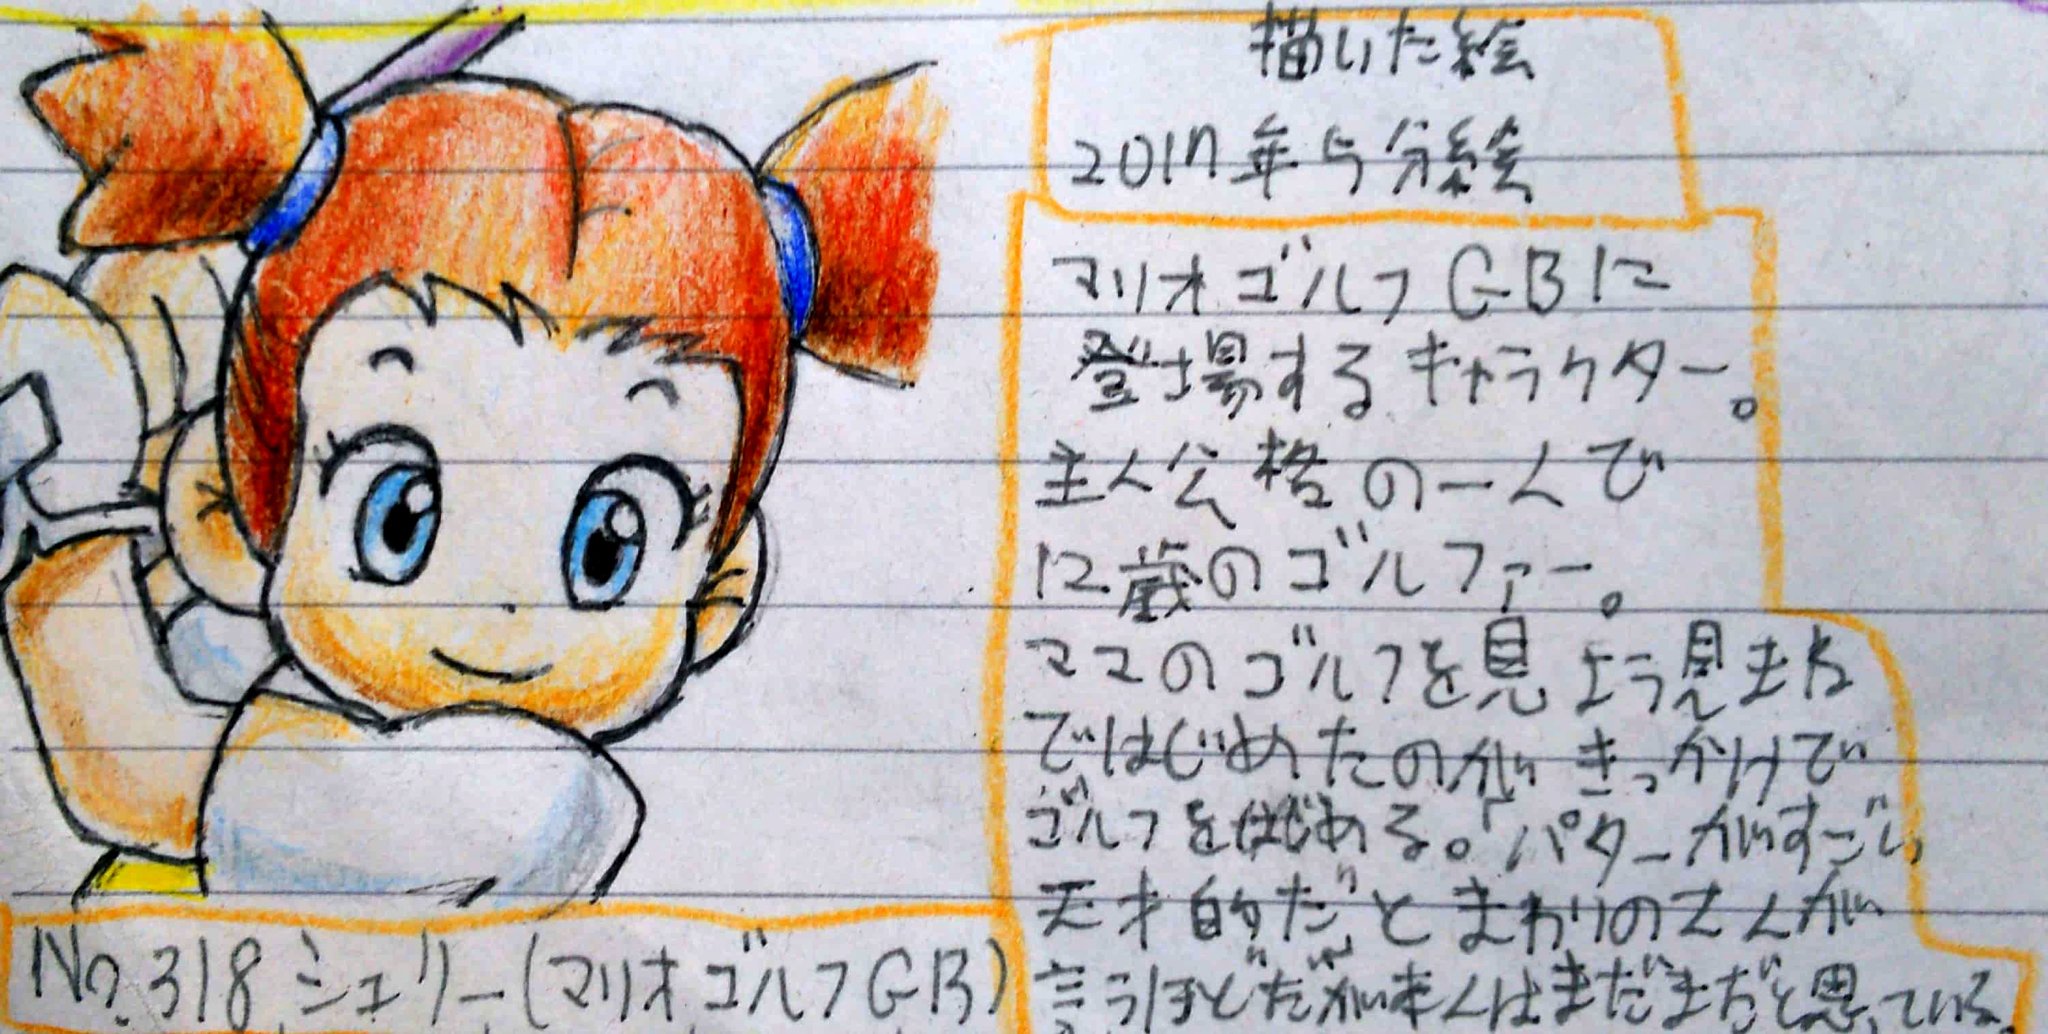 描いた絵
2017年与分絵
マリオゴルフGBに
登場するキャラクター。
主人公格の一人で
12歳のゴルファー。
ママのゴルフを見よう見まね
ではじめたのがきっかけで
ゴルフをはじめる。「パターがすごい
天才的だ」とまわりの大人が
言うほどだが本人はまだまだと思っている
No.318 シェリー(マリオゴルフGB)